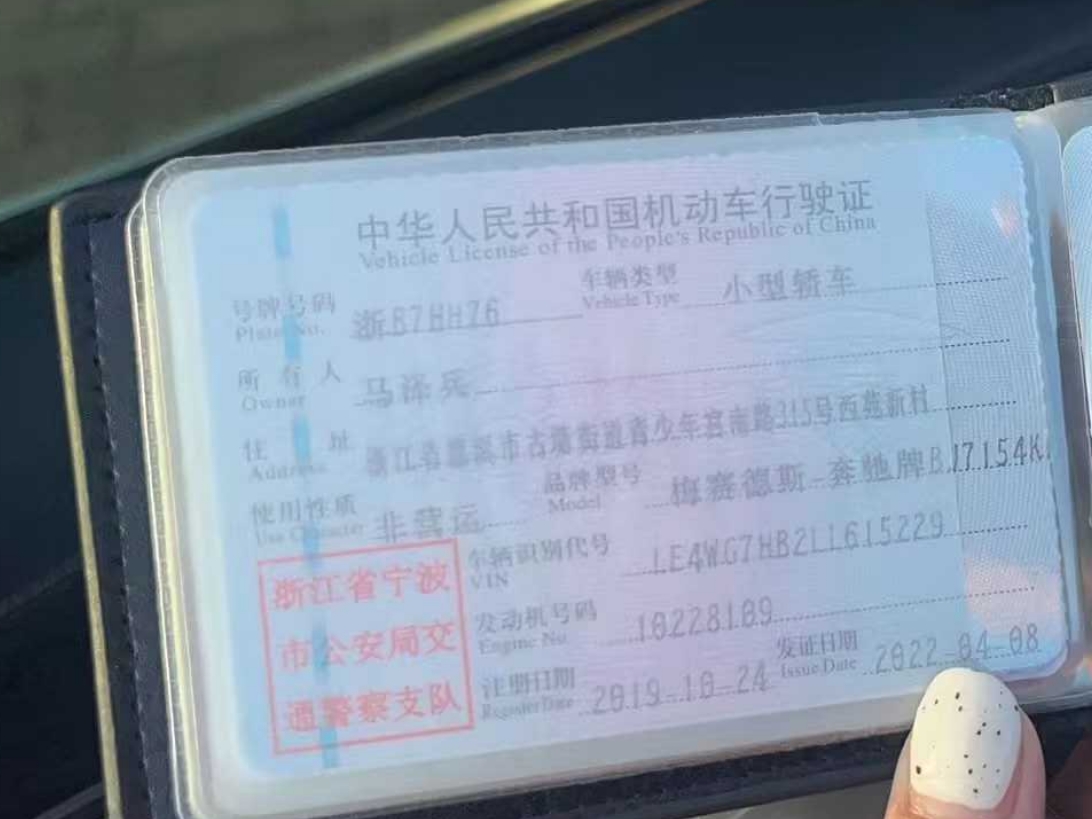 中华人民共和国机动车行驶证
Vehicle License of the People's Republic of China
号牌号码 浙B7HH76 车辆类型 小型轿车
Plate No. Vehicle Type
所有人 马泽兵
Owner
住址 浙江省慈溪市古塘街道青少年宫南路315号西苑新村
Address
使用性质 非营运 品牌型号 梅赛德斯-奔驰牌BJ7154K
Use Character Model
车辆识别代号 LE4WG7HB2LL615229
VIN
发动机号码 10228109
Engine No.
注册日期 2019-10-24 发证日期 2022-04-08
Register Date Issue Date
浙江省宁波
市公安局交
通警察支队